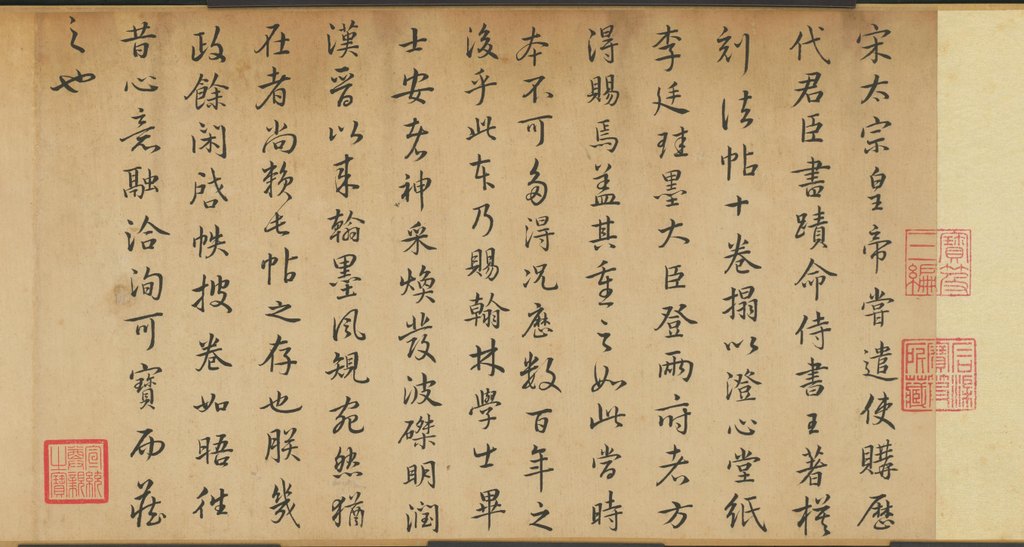 宋太宗皇帝嘗遣使購歷
代君臣書蹟命侍書王著模
刻法帖十卷搨以澄心堂紙
李廷珪墨大臣登兩府者方
得賜焉蓋其重之如此當時
本不可多得況歷數百年之
後乎此本乃賜翰林學士畢
士安者神采煥發波磔明潤
漢晉以來翰墨風規宛然猶
在者尚賴此帖之存也朕幾
政餘閑啟帙披卷如晤往
昔心意融洽洵可寶而藏
之也
寶笈三編
石渠寶笈所藏
宣統尊親之寶